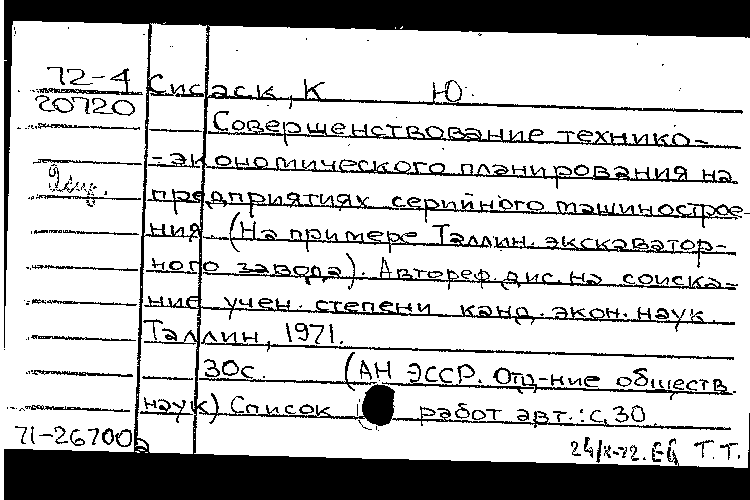 72-4 Сисаск, К Ю.
20720
Совершенствование технико-
-экономического планирования на
предприятиях серийного машинострое-
ния. (На примере Таллин. экскаватор-
ного завода). Автореф. дис. на соиска-
ние учен. степени канд. экон. наук.
Таллин, 1971.
30с. (АН ЭССР. Отд-ние обществ.
наук) Список работ авт.: с. 30.
71-26700
Т.Т.